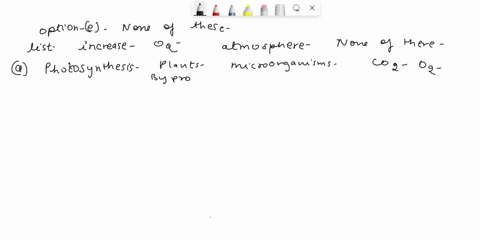 option-(e). None of these-
list- increase- O2- atmosphere- None of there-
(a) Photosynthesis- Plants- microorganisms- CO2- O2-
By pro